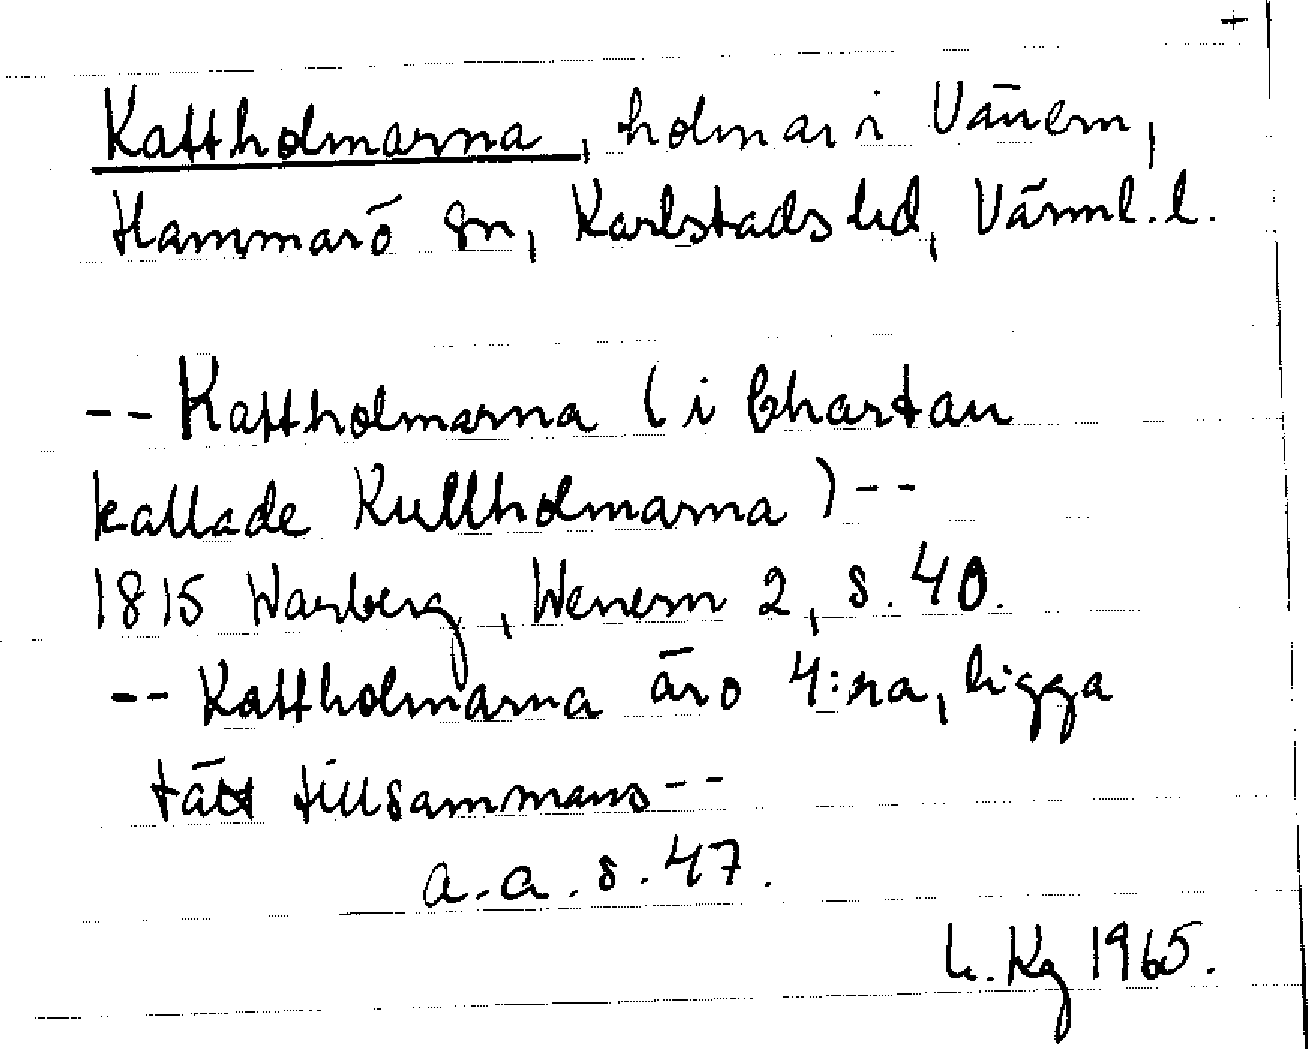 +
Kattholmarna, holmar i Vänern,
Hammarö sn, Karlstads hd, Värml. l.
-- Kattholmarna (i Chartan
kallade Kullholmarna) --
1815 Warberg, Wenern 2, s. 40.
-- Kattholmarna äro 4:ra, ligga
tätt tillsammans --
a. a. s. 47.
L. Kg 1965.